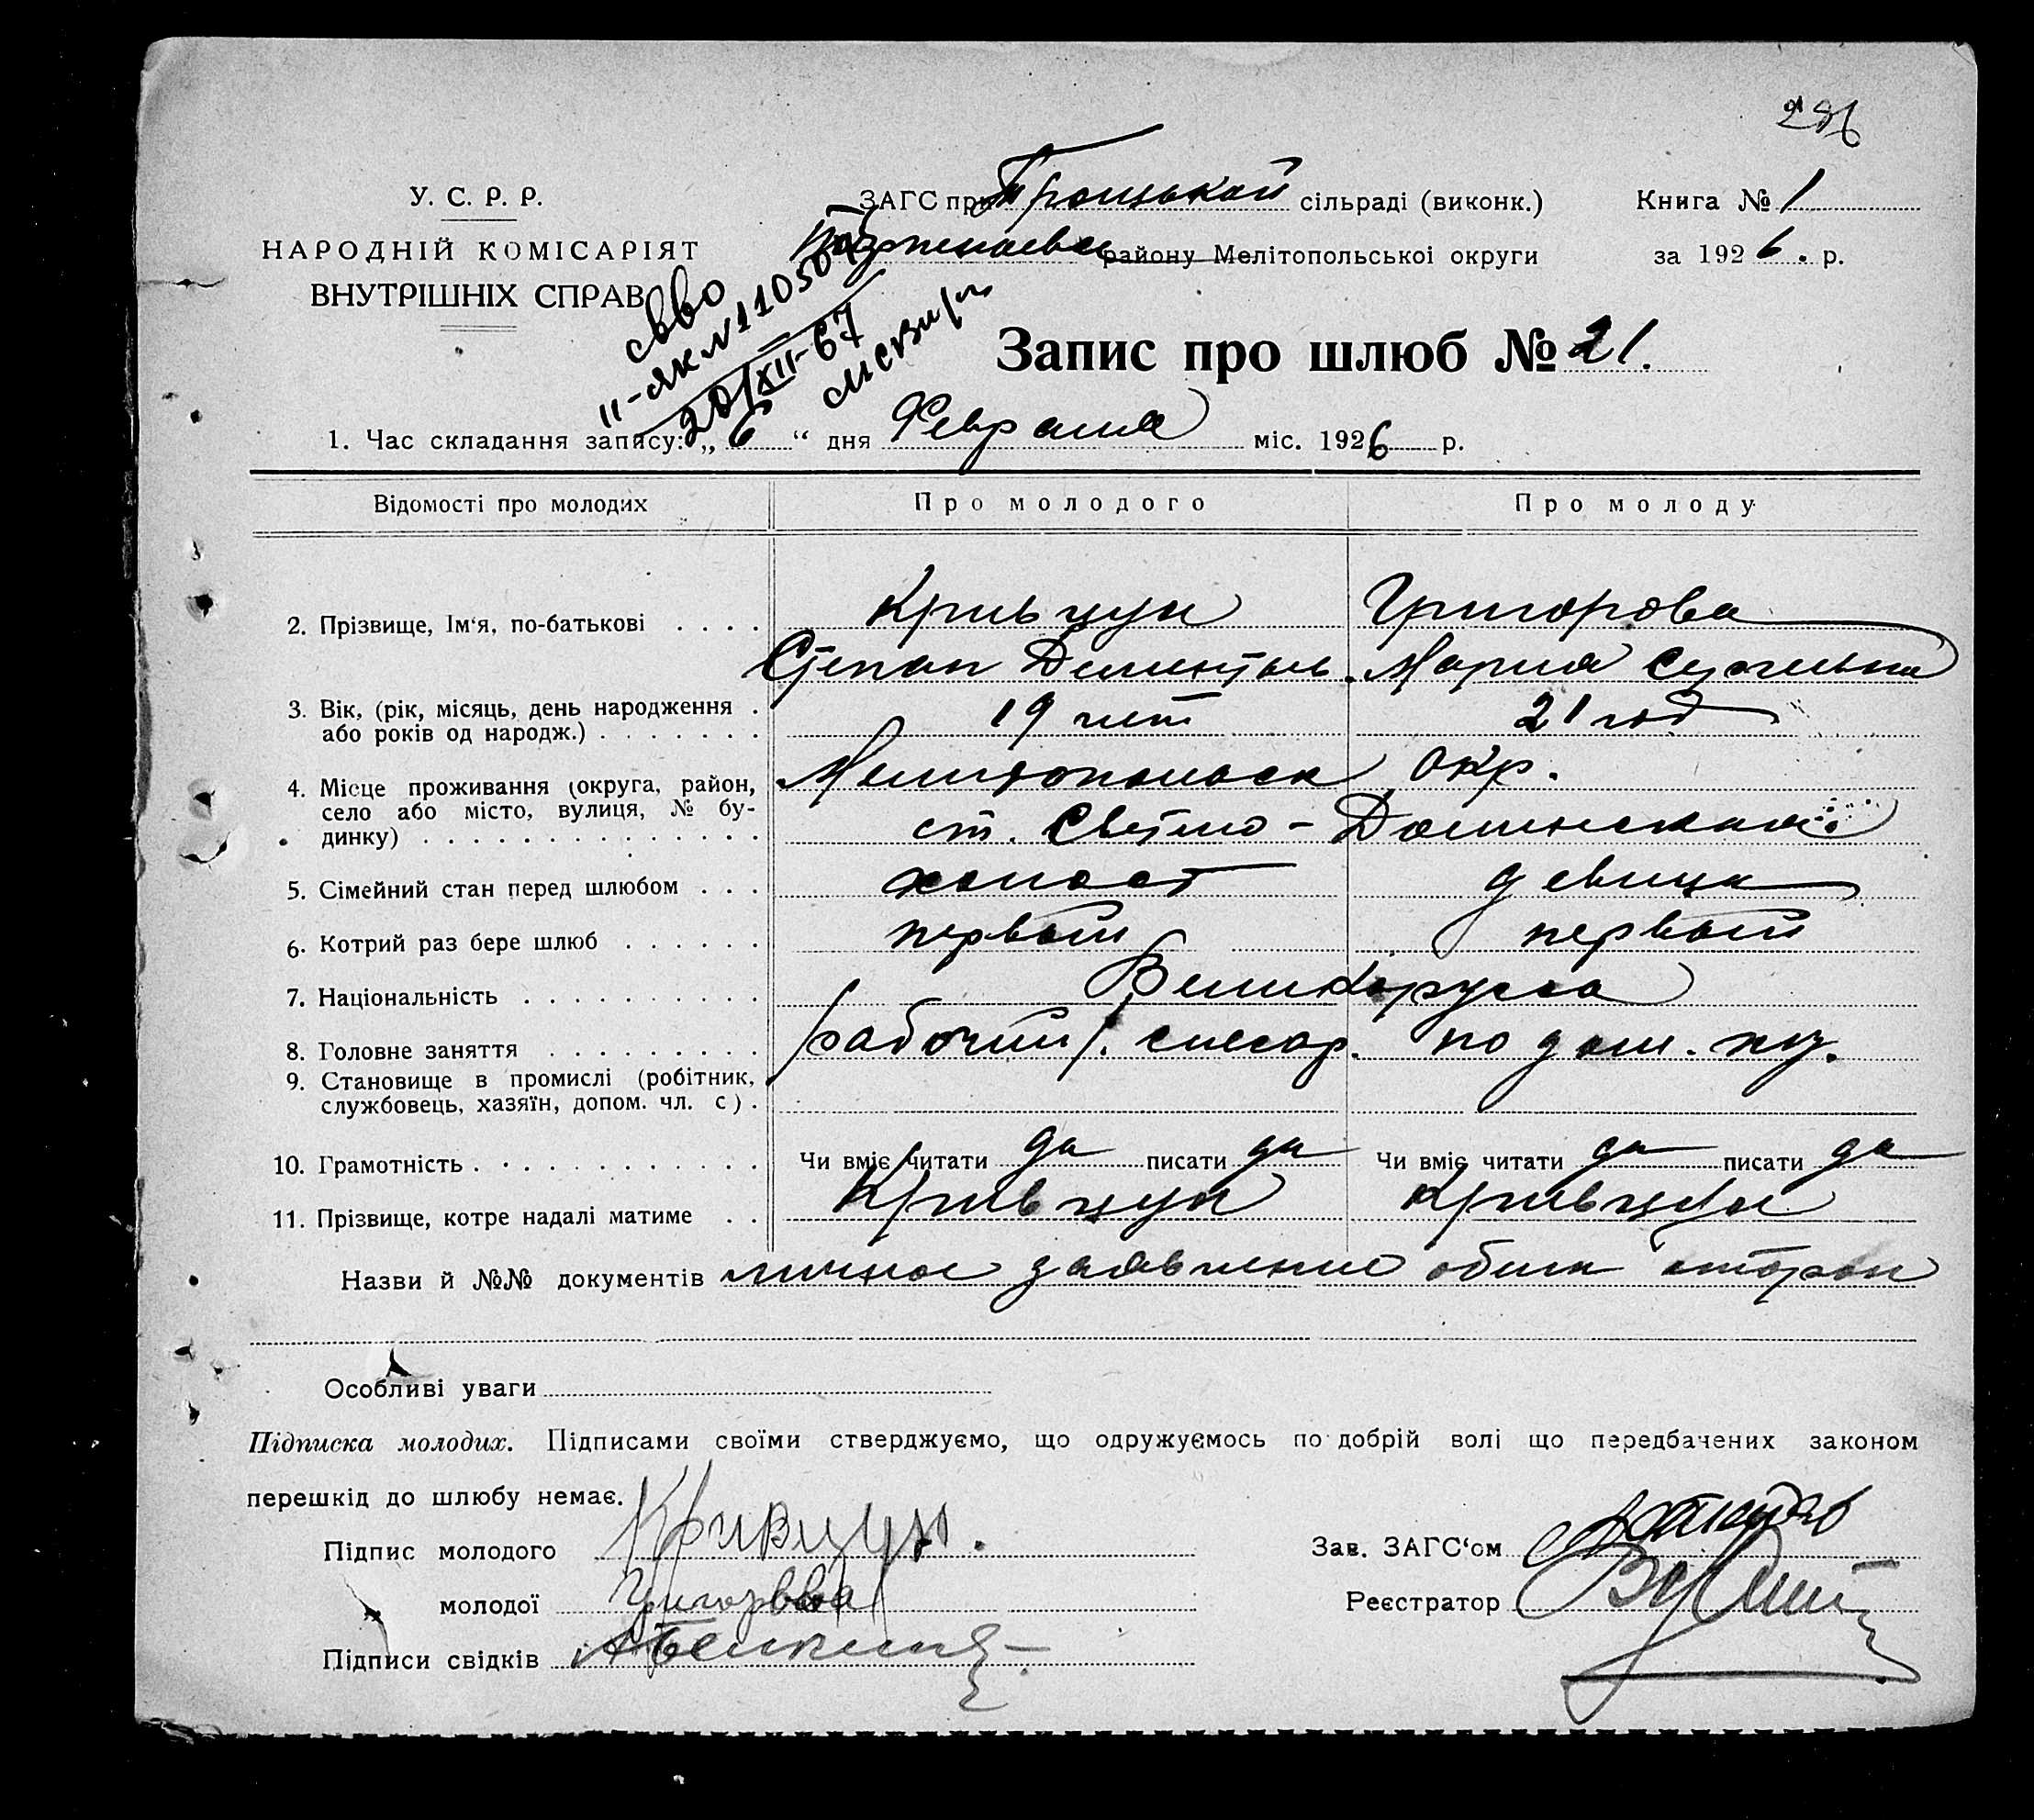 У. С. Р. Р.
НАРОДНІЙ КОМІСАРІЯТ
ВНУТРІШНІХ СПРАВ
ЗАГС при Троицькой сільраді (виконк.)
району Мелітопольської округи
Книга № 1
за 1926. р.
СВВО
II-ЯК № 110504
20/XII-67
Запис про шлюб № 21.
1. Час складання запису: „ 6 “ дня Февраля міс. 1926 р.
Відомості про молодих Про молодого Про молоду
2. Прізвище, Ім‘я, по-батькові . . . . Кривцун Григорова
Степан Дементьев. Мария
3. Вік, (рік, місяць, день народження .
або років од народж.) . . . . . . . 19 лет 21 год
4. Місце проживання (округа, район, Мелитопольск окр.
село або місто, вулиця, № бу-
динку) . . . . . . . . . . . . . . . ст. Светло-Долинская
5. Сімейний стан перед шлюбом . . . холост девица
6. Котрий раз бере шлюб . . . . . . первый первый
7. Національність . . . . . . . . . . Великорусса
8. Головне заняття . . . . . . . . . рабочий/. слесар. по дом. хоз.
9. Становище в промислі (робітник,
службовець, хазяїн, допом. чл. с) .
10. Грамотність . . . . . . . . . . . . Чи вміє читати да писати да Чи вміє читати да писати да
11. Прізвище, котре надалі матиме . . Кривцун Кривцун
Назви й №№ документів личное заявление обеих сторон
Особливі уваги
Підписка молодих. Підписами своїми стверджуємо, що одружуємось по добрій волі що передбачених законом
перешкід до шлюбу немає.
Підпис молодого Кривцун.
молодої Григорова
Підписи свідків
Зав. ЗАГС‘ом
Реєстратор